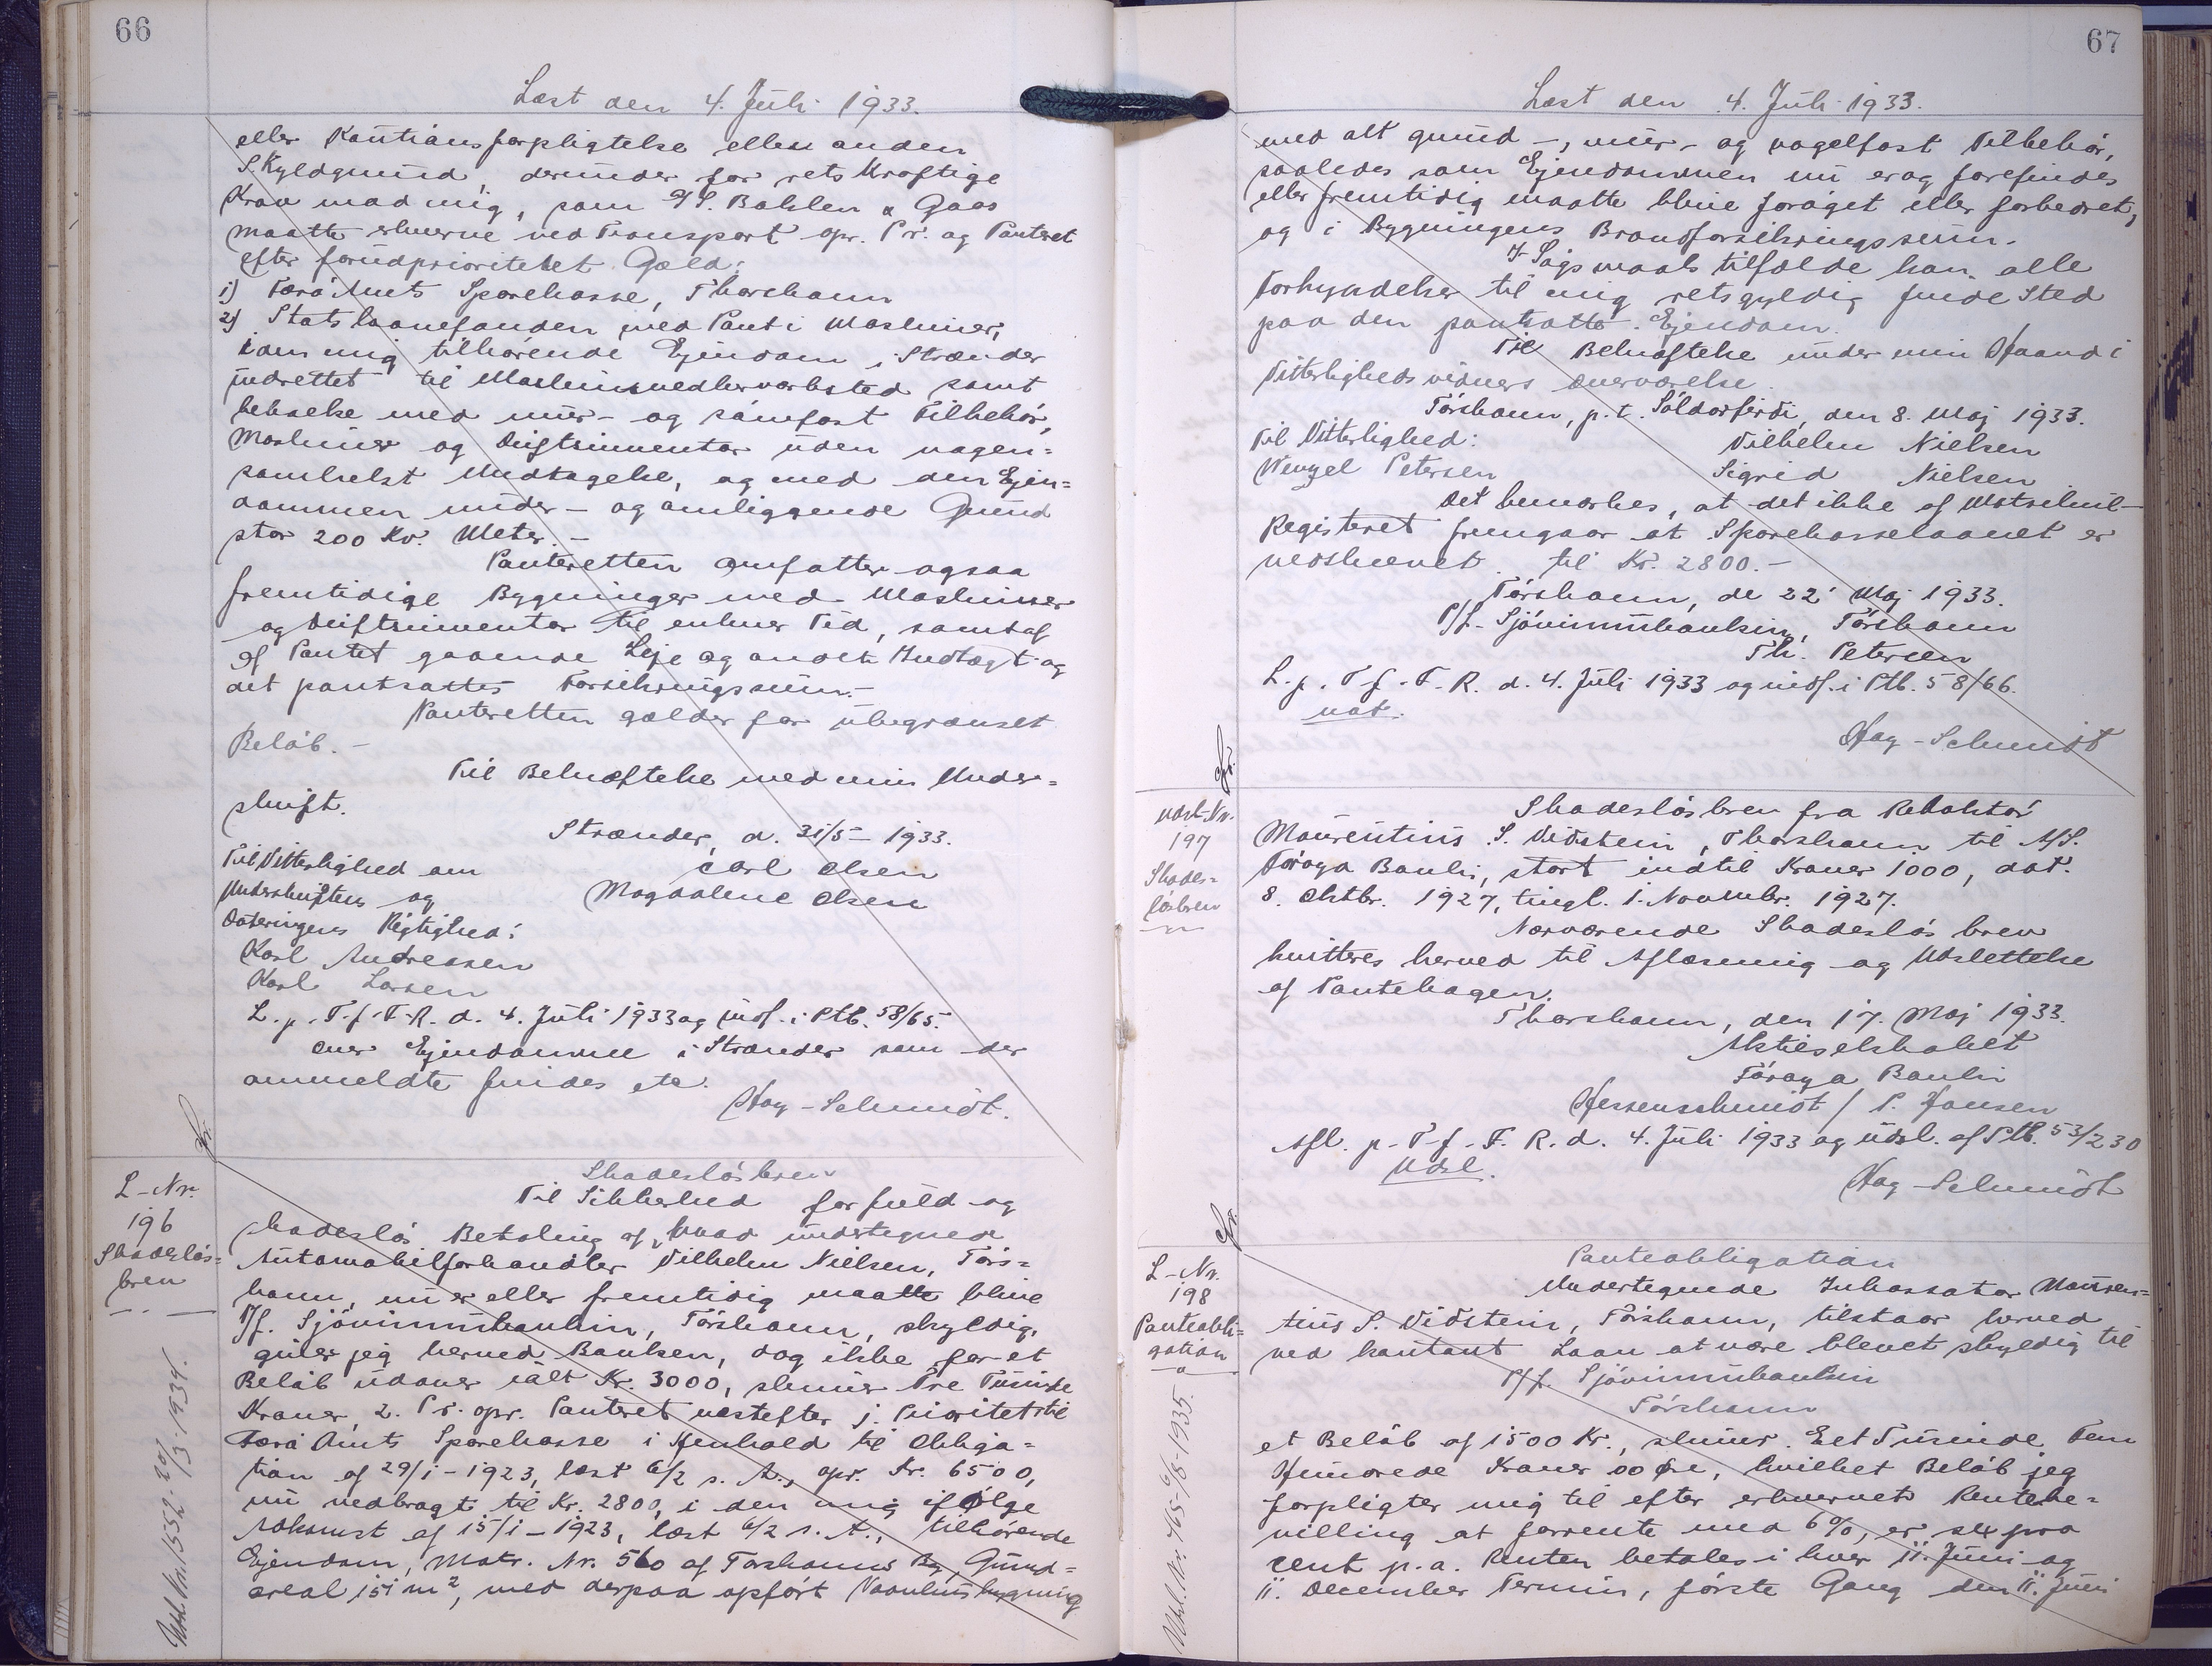 66
Læst den 4. Juli 1933.
eller Kautionsforpligtelse eller anden
Skyldgrund, derunder for retskraftige
Krav mod mig, som I/S. Bohlen & Gaas
maatte erhverve ved Transport opr. Pr. og Panteret
efter forudprioriteret Gæld:
1) Færø Amts Sparekasse, Thorshavn
2) Statslaanefonden med Pant i Maskiner,
i den mig tilhørende Ejendom i Strænder
indrettet til Maskinsnedkerværksted samt
bebaelse med mur- og sømfast Tilbehør,
Maskiner og Driftsinventar uden nogen=
somhelst Undtagelse, og med den Ejen=
dommen under- og omliggende Grund
stor 200 Kv. Meter.-
Panteretten omfatter ogsaa
fremtidige Bygninger med Maskiner
og Driftsinventar til enhver Tid, samt af
af Pantet gaaende Leje og anden Indtægt og
det pantsattes Forsikringssum.-
Panteretten gælder for ubegrænset
Beløb.-
Til Bekræftelse med min Under=
skrift.
Strænder, d. 31/5 - 1933.
Til Vitterlighed om Carl Olsen
Underskriften og Magdalene Olsen
Dateringens Rigtighed:
Karl Andreasen
Karl Larsen
L. p. T. f. F. R. d. 4. Juli 1933 og indf. i Ptb. 58/65.
over Ejendomme i Strænder som der
anmeldte findes etc.
Hag-Schmidt.
Fr.
L-Nr.
196
Skadesløs=
brev
Udsl. Nr. 1552 - 20/3 - 1934.
Skadesløsbrev
Til Sikkerhed for fuld og
skadesløs Betaling af, hvad undertegnede
Automobilforhandler Vilhelm Nielsen, Tórs=
havn, nu er eller fremtidig maatte blive
P/f. Sjóvinnubankin, Tórshavn, skyldig,
giver jeg herved Banken, dog ikke for et
Beløb udover ialt Kr. 3000, skriver Tre Tusinde
Kroner, 2. Pr. opr. Panteret næstefter 1. Prioritet til
Færø Amts Sparekasse i Henhold til Obliga=
tion af 29/1 - 1923, læst 6/2 s. A., opr. Kr. 6500,
nu nedbragt til Kr. 2800, i den mig ifølge
Adkomst af 15/1 - 1923, læst 6/2 s. A., tilhørende
Ejendom, Matr. Nr. 560 af Torshavns By, Grund=
areal 151 m², med derpaa opført Vaaningsbygning
67
Læst den 4. Juli 1933.
med alt grund-, mur- og nagelfast Tilbehør,
saaledes som Ejendommen nu er og forefindes
eller fremtidig maatte blive forøget eller forbedret,
og i Bygningens Brandforsikringssum.
I Søgsmaals tilfælde kan alle
Forkyndelser til mig retsgyldig finde Sted
paa den pantsatte Ejendom.
Til Bekræftelse under min Haand i
Vitterlighedsvidners Overværelse.
Tórshavn, p. t. Söldarfirði, den 8. Maj 1933.
Til Vitterlighed: Vilhelm Nielsen
Wenzel Petersen Sigrid Nielsen
Det bemærkes, at det ikke af Matrikul-
Registeret fremgaar at Sparekasselaanet er
nedskrevet til Kr. 2800.-
Tórshavn, de 22' Maj 1933.
P/f. Sjóvinnubankin, Tórshavn
Th. Petersen
L. p. T. f. F. R. d. 4. Juli 1933 og indf. i Ptb. 58/66.
not.
Hag-Schmidt
Fr.
Udsl-Nr.
197
Skades=
løsbrev
Skadesløsbrev fra Redaktør
Maurentius S. Viðstein, Thorshavn til A/S.
Føroya Banki, stort indtil Kroner 1000, dat.
8. Oktbr. 1927, tingl. 1. Novembr. 1927.
Nærværende Skadesløsbrev
kvitteres herved til Aflæsning og Udslettelse
af Pantebogen.
Thorshavn, den 17. Maj 1933.
Aktieselskabet
Føroya Banki
Hessenschmidt / P. Hansen
Afl. p. T. f. F. R. d. 4. Juli 1933 og udsl. af Ptb. 53/230
Udsl.
Hag-Schmidt
Fr.
L-Nr.
198
Panteobli=
gation
Udsl. Nr. 765 - 6/8 - 1935.
Panteobligation
Undertegnede Inkassator Mauren=
tius S. Viðstein, Tórshavn, tilstaar herved
ved kontant Laan at være blevet skyldig til
P/f. Sjóvinnubankin
Tórshavn
et Beløb af 1500 Kr., skriver Eet Tusinde Fem
Hundrede Kroner 00 Øre, hvilket Beløb jeg
forpligter mig til efter erhvervet Rentebe=
villing at forrente med 6%, er sex pro
cent p. a. Renten betales i hver 11. Juni og
11. December Termin, første Gang den 11. Juni